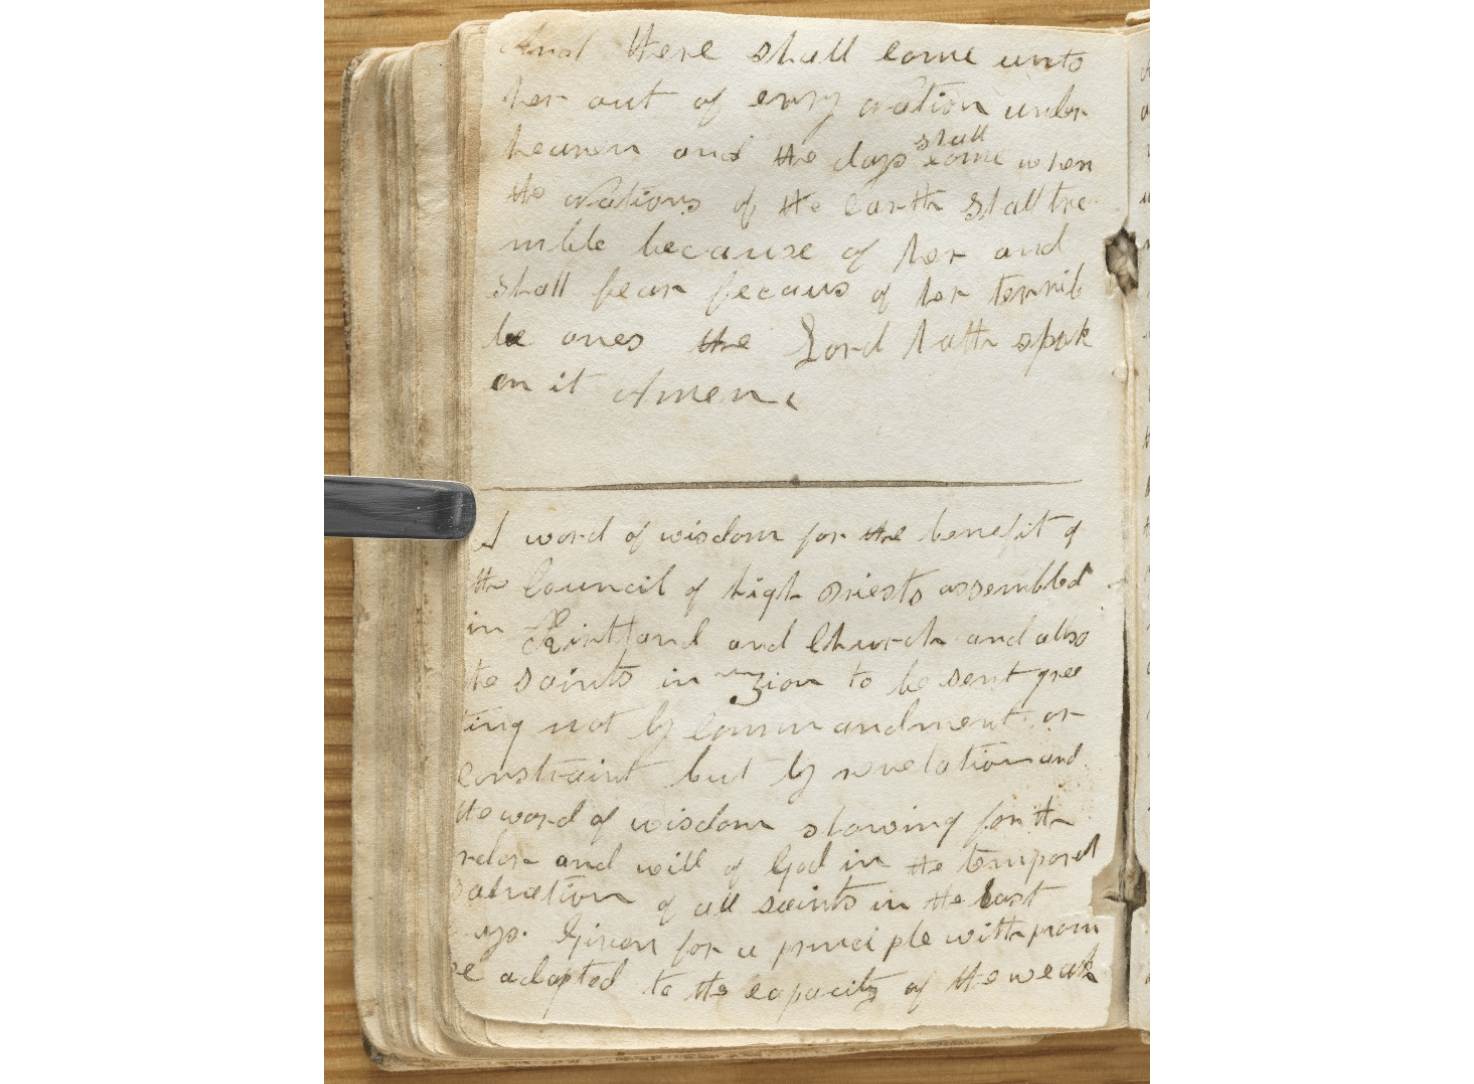 And there shall come unto
her out of evry Nation under
heaven and the day shall come when
the Nations of the earth shall tre
mble because of her and
shall fear becaus of her terrib
le ones the Lord hath spok
en it Amen
A word of wisdom for the benefit of
the Council of high Priests assembled
in Kirtland and Church and also
the saints in Zion to be sent gree
ting not by commandment or
constraint but by revelation and
the word of wisdom showing forth
rder and will of God in the temporal
salvation of all saints in the last
ays. Given for a principle with prom
e adapted to the capacity of the weak